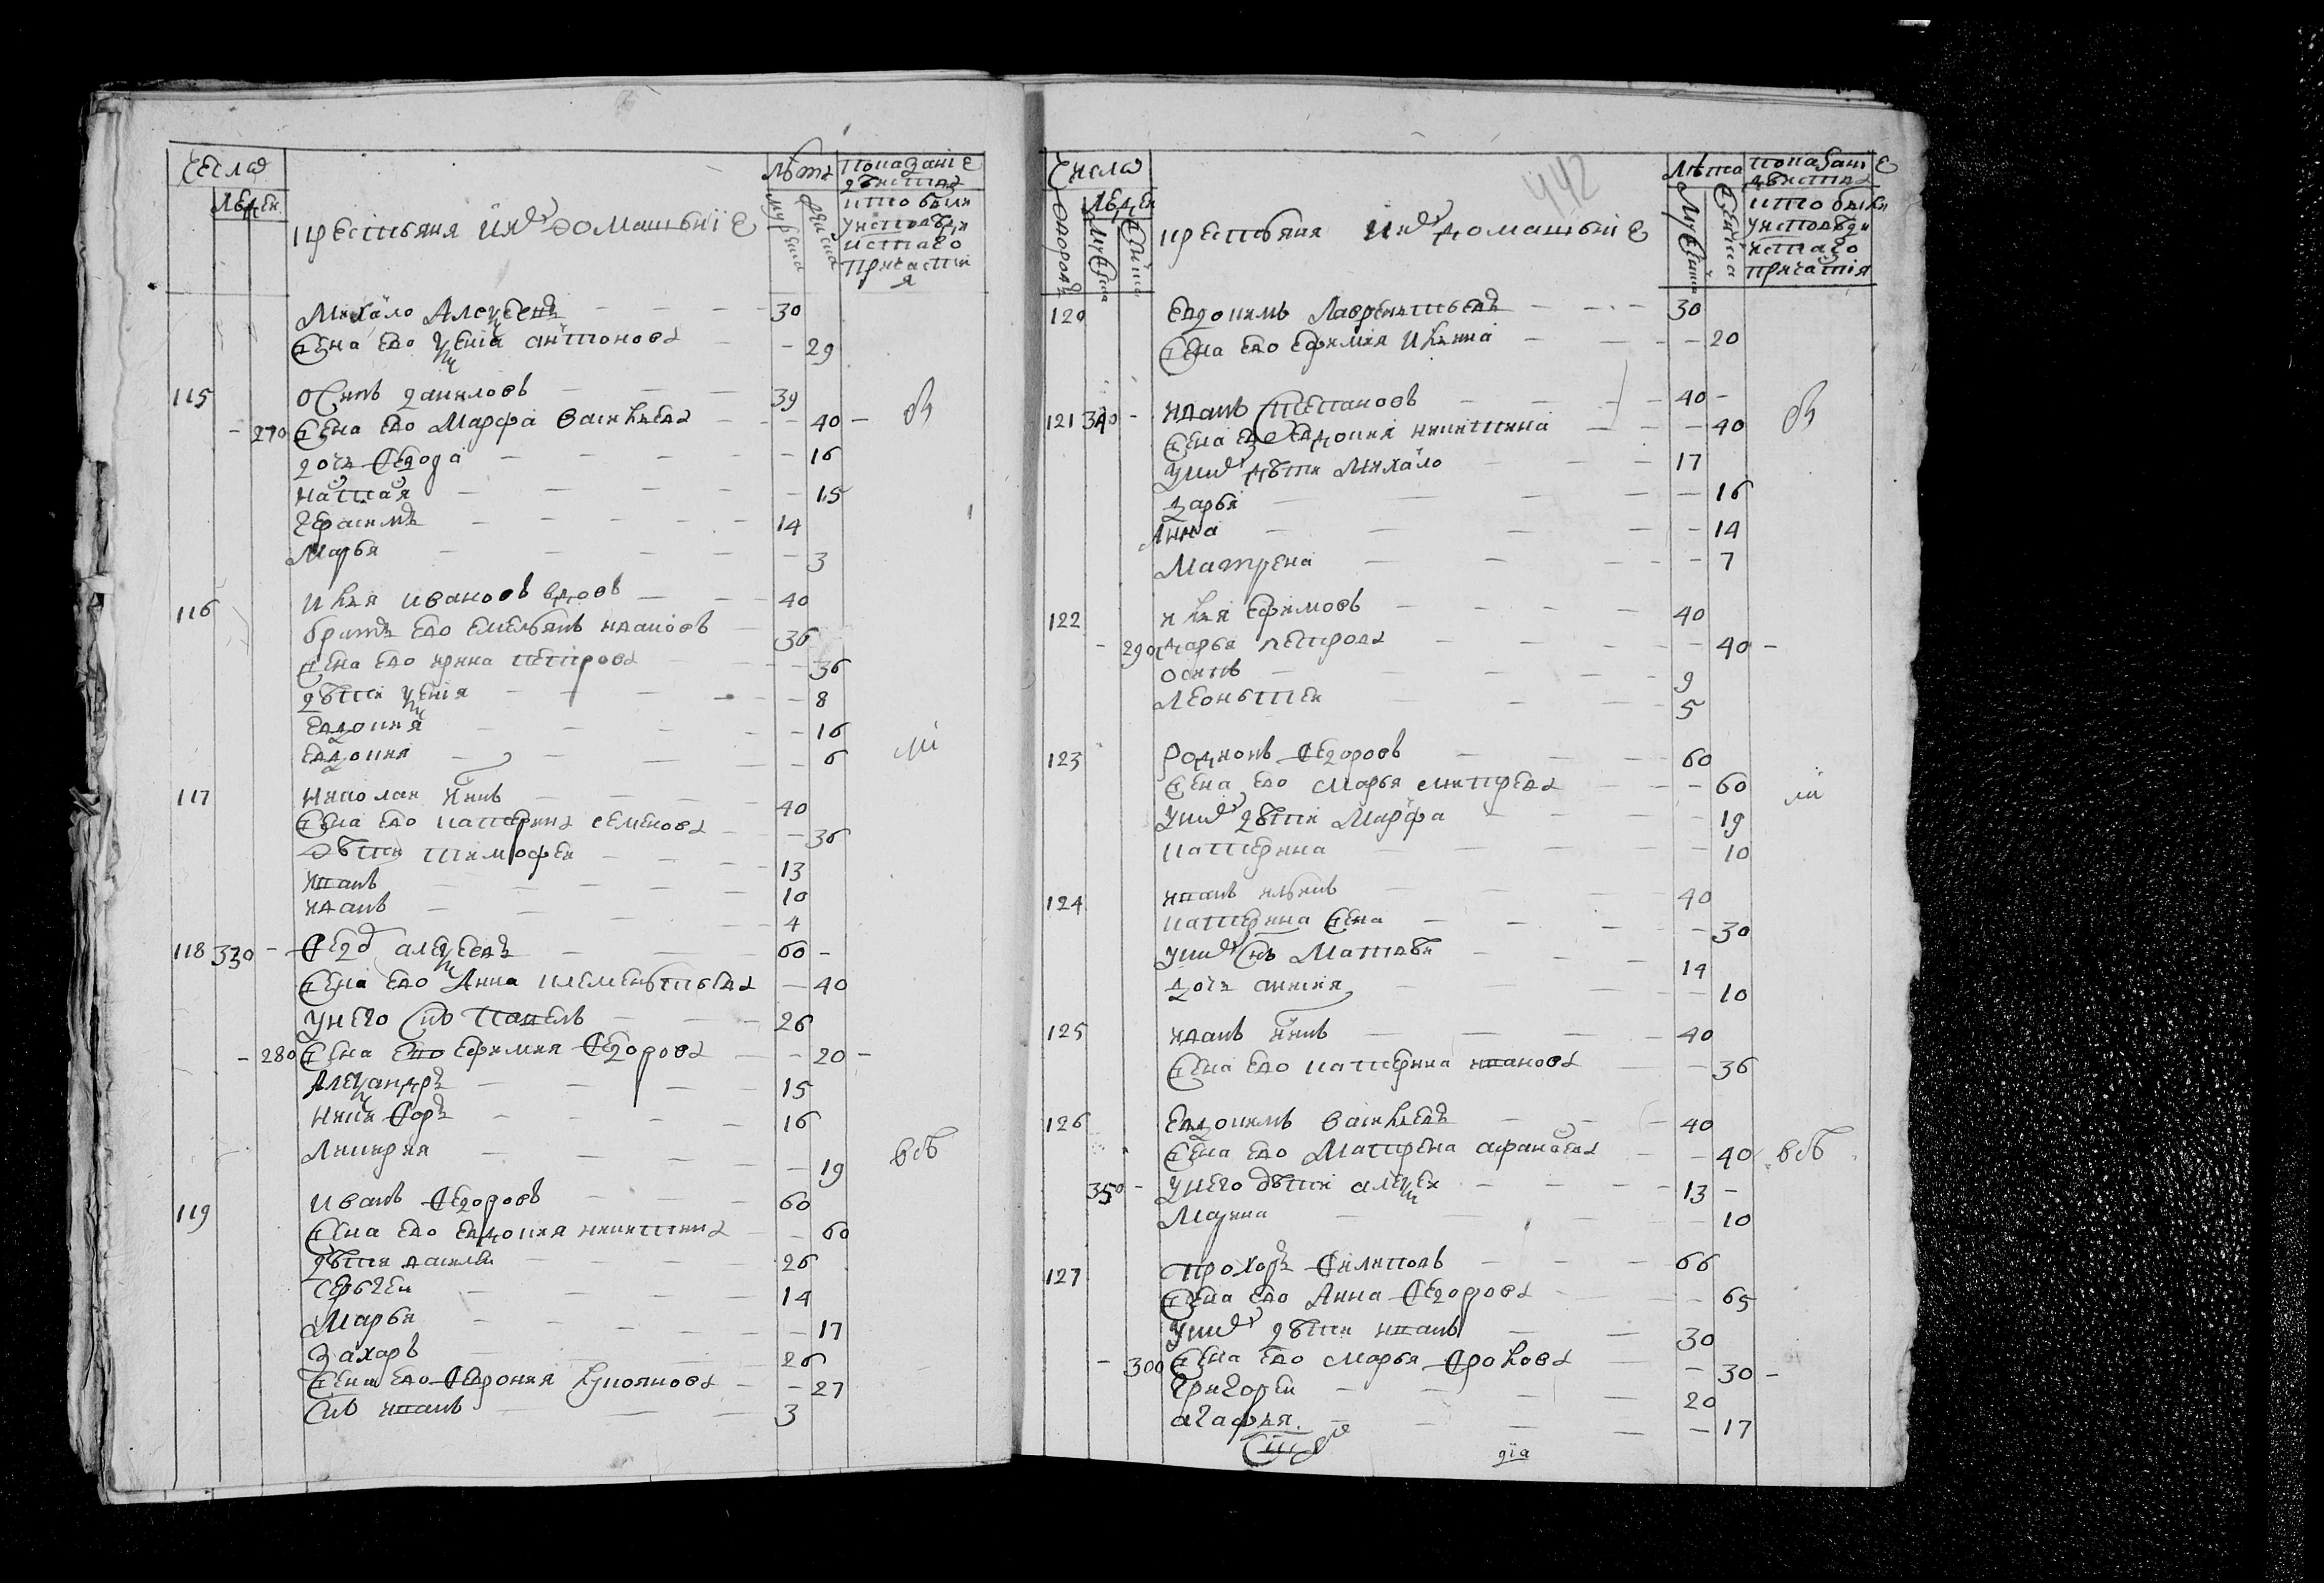 Число
людей
крестьяня и их домашьніе
лѣта
мужеска
женска
показаніе
действа
кто были
у исповѣди
и стаго
причасті
я
Михайло Алексеевъ — 30
жена ево Ксения антонова — 29
115 Осипъ данилов — 39
270 жена ево Марфа василева — 40 —
дочь Федора — 16
настася — 15
герасимъ — 14
Марья — 3
116 илья иванов вдовъ — 40
братъ ево емельянъ иванов — 36
жена ево ирина петрова — 36
дѣти Ксения — 8
евдокия — 16
евдокия — 6
117 николаи — 40
жена ево катерина семенова — 36
дѣти тимофеи — 13
иванъ — 10
иванъ — 4
118 330 — Федо алексеевъ — 60 —
жена ево Анна клементьева — 40
у него снъ Павелъ — 26
280 жена ево ефимия Федорова — 20 —
Александръ — 15
никифоръ — 16
Лукирия — 19
119 иванъ Федоровъ — 60
жена ево евдокия никитина — 60
дѣти василеи — 26
сергеи — 14
Марья — 17
Захаръ — 26
жена ево Феврония лукоянова — 27
снъ иванъ — 3
всѣ
Числа
людеи
дворовъ
мужеска
женска
крестьяня и их домашьніе
442
лѣта
мужеска
женска
показаніе
дѣиства
кто были
у исповѣди
и стаго
причастія
120 евдокимъ Лаврентьевъ — 30
жена ево ефимия илина — 20
121 340 — иванъ степанов — 40 —
жена ево евдокия никитина — 40
у них дѣти Михайло — 17
дарья — 16
Анна — 14
Матрена — 7
122 илья ефимов — 40
290 дарья петрова — 40 —
осипъ — 9
леоньтеи — 5
123 Родионъ Федоров — 60
жена ево марья дмитрева — 60
у них дѣти Марфа — 19
катерина — 10
124 иванъ ильинъ — 40
катерина жена — 30
у них снъ Матвѣи — 14
дочь анисия — 10
125 иванъ — 40
жена ево катерина иванова — 36
126 евдокимъ василевъ — 40
жена ево Матрена афанасева — 40
всѣ
350 — у него дѣти алексеи — 13 —
Марина — 10
127 прохоръ Филипов — 66
жена ево Анна Федорова — 65
у них дѣти иванъ — 30
300 жена ево марья Фролова — 30 —
григореи — 20
агафия — 17